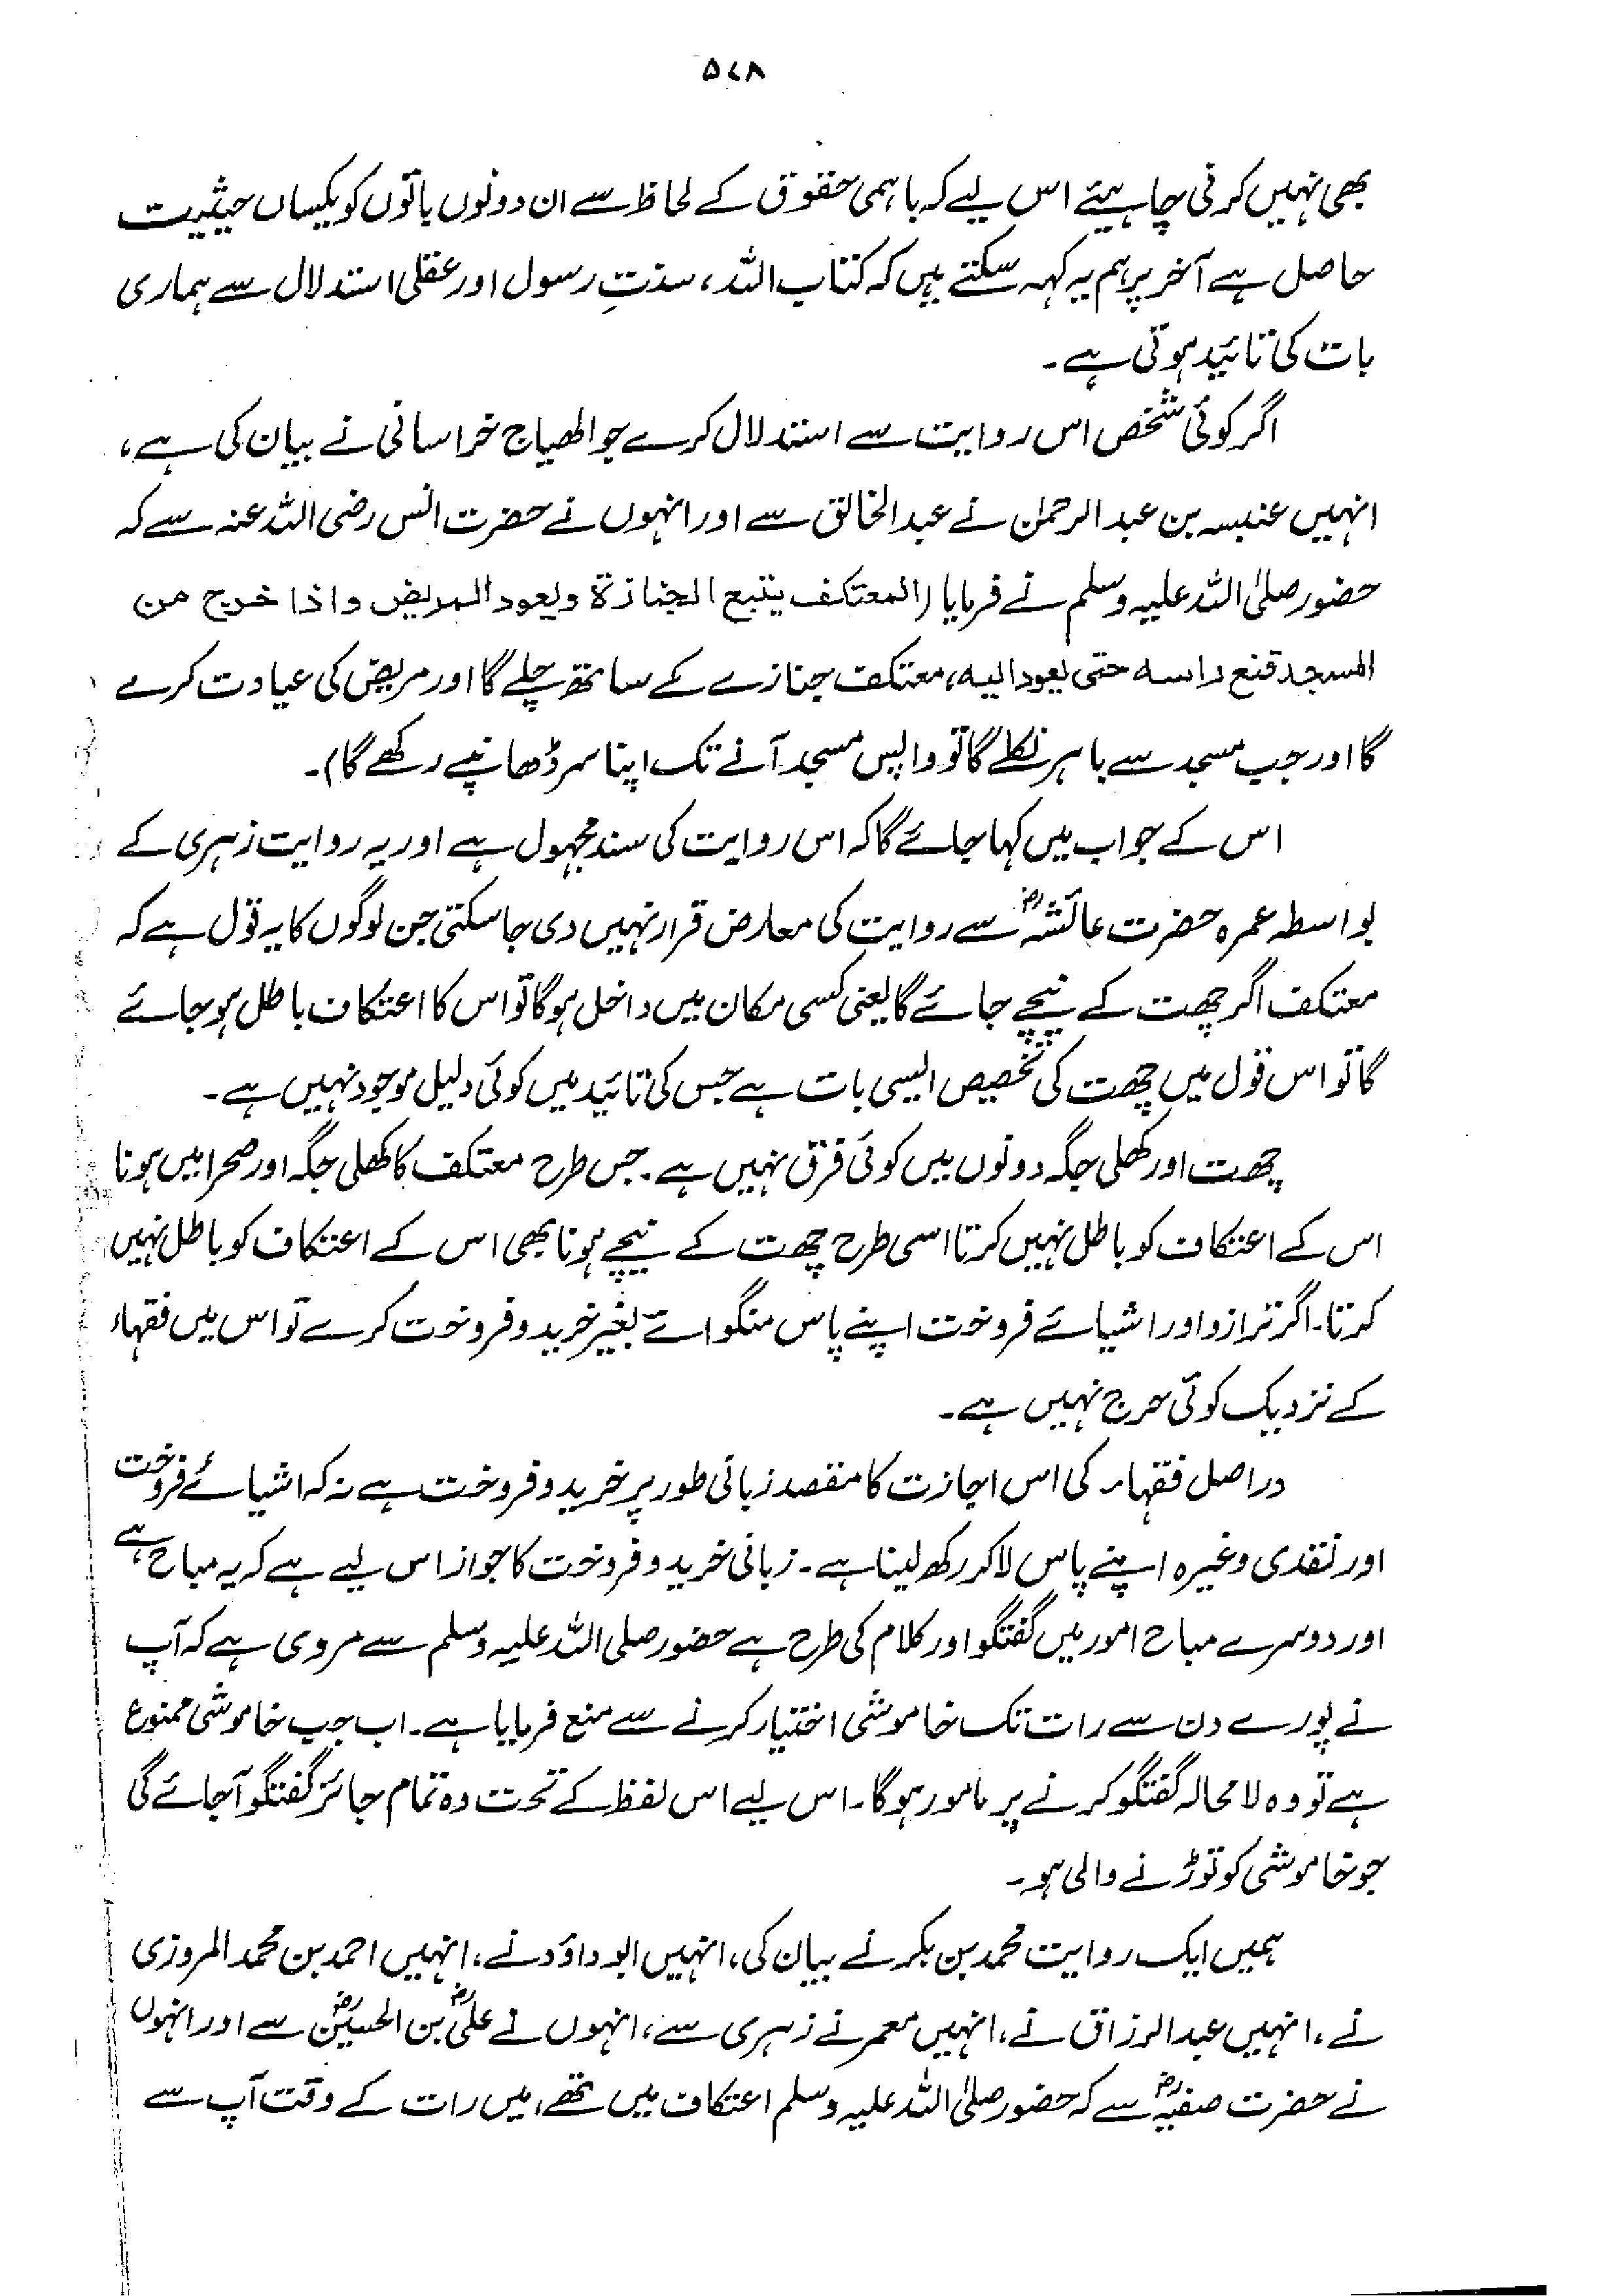 ۵۷۸
بھی نہیں کرنی چاہیئے اس لیے کہ باہمی حقوق کے لحاظ سے ان دونوں باتوں کو یکساں حیثیت
حاصل ہے آخر پر ہم یہ کہہ سکتے ہیں کہ کتاب اللہ، سنتِ رسول اور عقلی استدلال سے ہماری
بات کی تائید ہوتی ہے۔
اگر کوئی شخص اس روایت سے استدلال کرے جو الھیاج خراسانی نے بیان کی ہے،
انہیں عنبسہ بن عبد الرحمٰن نے عبد الخالق سے اور انہوں نے حضرت انس رضی اللہ عنہ سے کہ
حضور صلیٰ اللہ علیہ وسلم نے فرمایا (المعتکف یتبع الجنازة ویعود المریض واذا خرج من
المسجد قنع راسہ حتی یعود الیہ، معتکف جنازے کے ساتھ چلے گا اور مریض کی عیادت کرے
گا اور جب مسجد سے باہر نکلے گا تو واپس مسجد آنے تک اپنا سر ڈھانپے رکھے گا)۔
اس کے جواب میں کہا جائے گا کہ اس روایت کی سند مجہول ہے اور یہ روایت زہری کے
بواسطہ عمرہ حضرت عائشہؓ سے روایت کی معارض قرار نہیں دی جا سکتی جن لوگوں کا یہ قول ہے کہ
معتکف اگر چھت کے نیچے جائے گا یعنی کسی مکان میں داخل ہو گا تو اس کا اعتکاف باطل ہو جائے
گا تو اس قول میں چھت کی تخصیص ایسی بات ہے جس کی تائید میں کوئی دلیل موجود نہیں ہے۔
چھت اور کھلی جگہ دونوں میں کوئی فرق نہیں ہے۔ جس طرح معتکف کا کھلی جگہ اور صحرا میں ہونا
اس کے اعتکاف کو باطل نہیں کرتا اسی طرح چھت کے نیچے ہونا بھی اس کے اعتکاف کو باطل نہیں
کرتا۔ اگر ترازو اور اشیائے فروخت اپنے پاس منگوائے بغیر خرید و فروخت کرے تو اس میں فقہاء
کے نزدیک کوئی حرج نہیں ہے۔
دراصل فقہاء کی اس اجازت کا مقصد زبانی طور پر خرید و فروخت ہے نہ کہ اشیائے فروخت
اور نقدی وغیرہ اپنے پاس لا کر رکھ لینا ہے۔ زبانی خرید و فروخت کا جواز اس لیے ہے کہ یہ مباح ہے
اور دوسرے مباح امور میں گفتگو اور کلام کی طرح ہے حضور صلی اللہ علیہ وسلم سے مروی ہے کہ آپ
نے پورے دن سے رات تک خاموشی اختیار کرنے سے منع فرمایا ہے۔ اب جب خاموشی ممنوع
ہے تو وہ لا محالہ گفتگو کرنے پر مامور ہو گا۔ اس لیے اس لفظ کے تحت وہ تمام جائز گفتگو آ جائے گی
جو خاموشی کو توڑنے والی ہو۔
ہمیں ایک روایت محمد بن بکر نے بیان کی، انہیں ابو داؤد نے، انہیں احمد بن محمد المروزی
نے، انہیں عبد الرزاق نے، انہیں معمر نے زہری سے، انہوں نے علیؓ بن الحسینؓ سے اور انہوں
نے حضرت صفیہؓ سے کہ حضور صلیٰ اللہ علیہ وسلم اعتکاف میں تھے، میں رات کے وقت آپ سے